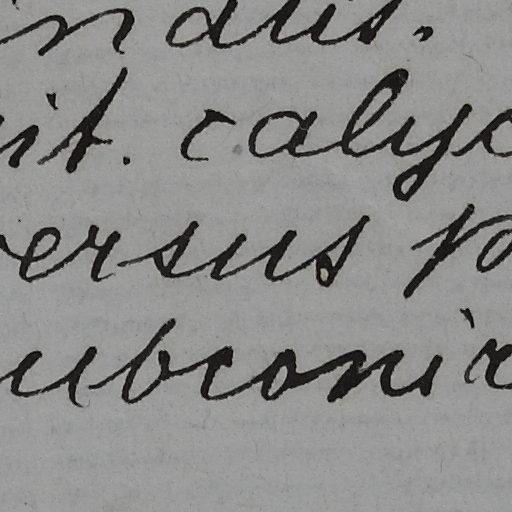 ndus.
it. c. alyc
ersus p
ubconic